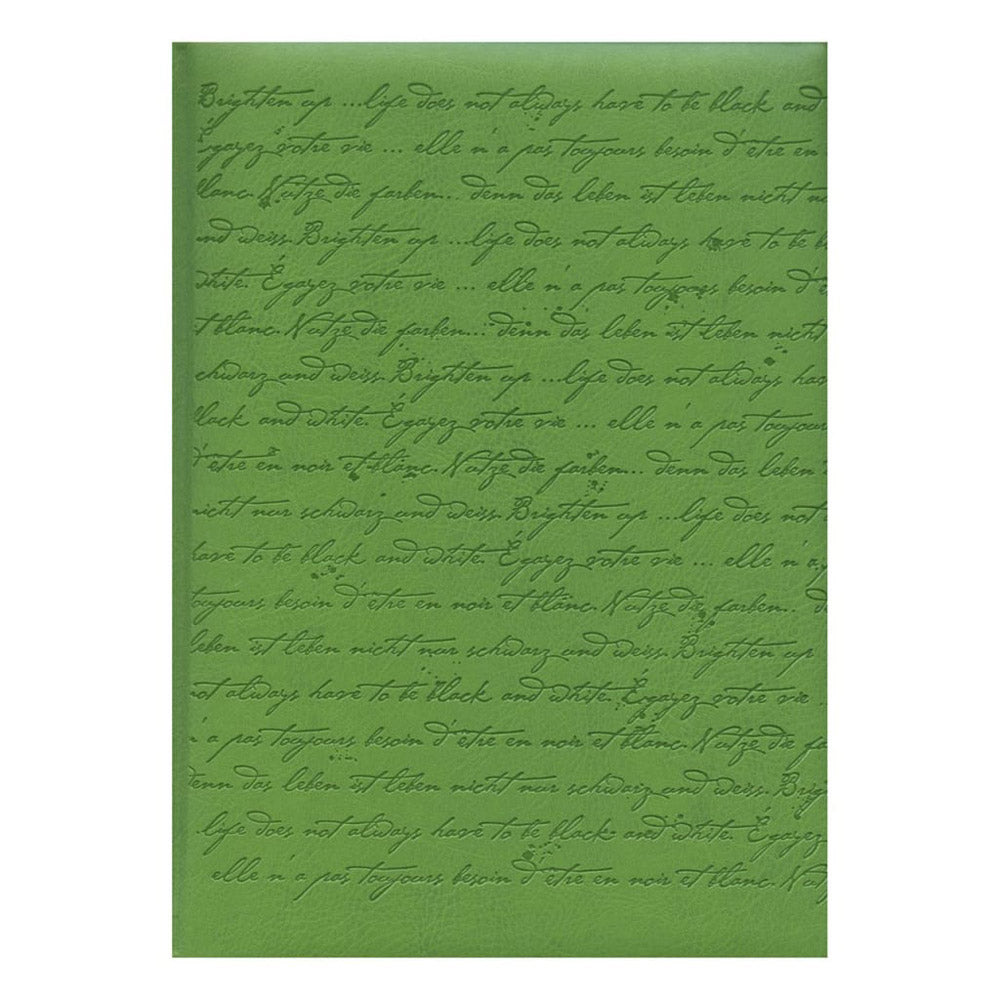 Brighten up ...life does not always have to be black and
Égayez votre vie ... elle n'a pas toujours besoin d'être en
blanc. Nutze die farben... denn das leben ist leben nicht n
und weiss. Brighten up ...life does not always have to be b
white. Égayez votre vie ... elle n'a pas toujours besoin d'ê
t blanc. Nutze die farben... denn das leben ist leben nicht
schwarz und weiss. Brighten up ...life does not always hav
black and white. Égayez votre vie ... elle n'a pas toujour
d'être en noir et blanc. Nutze die farben... denn das leben
nicht nur schwarz und weiss. Brighten up ...life does not
have to be black and white. Égayez votre vie ... elle n'a p
toujours besoin d'être en noir et blanc. Nutze die farben.. d
leben ist leben nicht nur schwarz und weiss. Brighten up
not always have to be black and white. Égayez votre vie ..
a pas toujours besoin d'être en noir et blanc. Nutze die fa
denn das leben ist leben nicht nur schwarz und weiss. Brig
.life does not always have to be black and white. Égayez
elle n'a pas toujours besoin d'être en noir et blanc. Nut